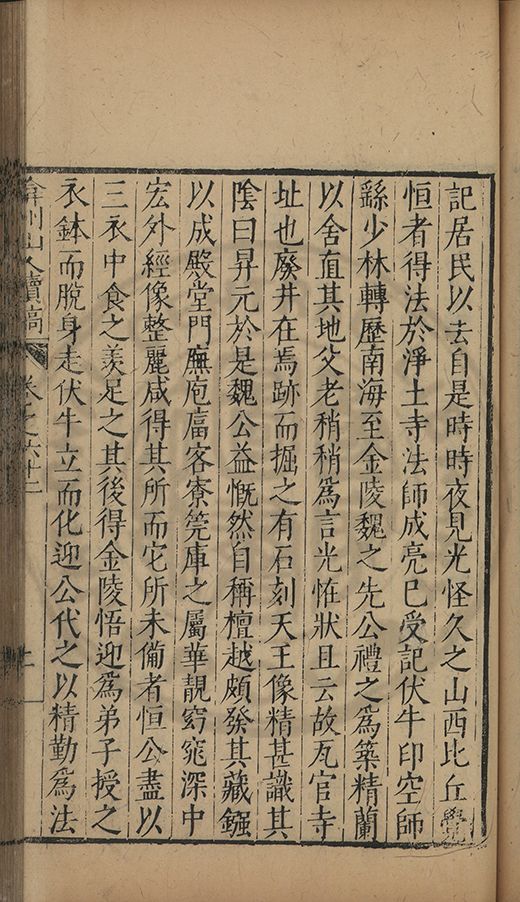 記居民以去自是時時夜見光怪久之山西比丘覺
恒者得法於淨土寺法師成亮已受記伏牛印空師
繇少林轉歷南海至金陵魏之先公禮之為築精蘭
以舍直其地父老稍稍為言光恠狀且云故瓦官寺
址也廢井在焉跡而掘之有石刻天王像精甚識其
陰曰昇元於是魏公益慨然自稱檀越頗發其藏鏹
以成殿堂門廡庖湢客寮筦庫之屬華靚窈窕深中
宏外經像整麗咸得其所而宅所未備者恒公盡以
三衣中食之羡足之其後得金陵悟迎為弟子授之
衣鉢而脫身走伏牛立而化迎公代之以精勤為法
弇州山人續稿 卷之六十二